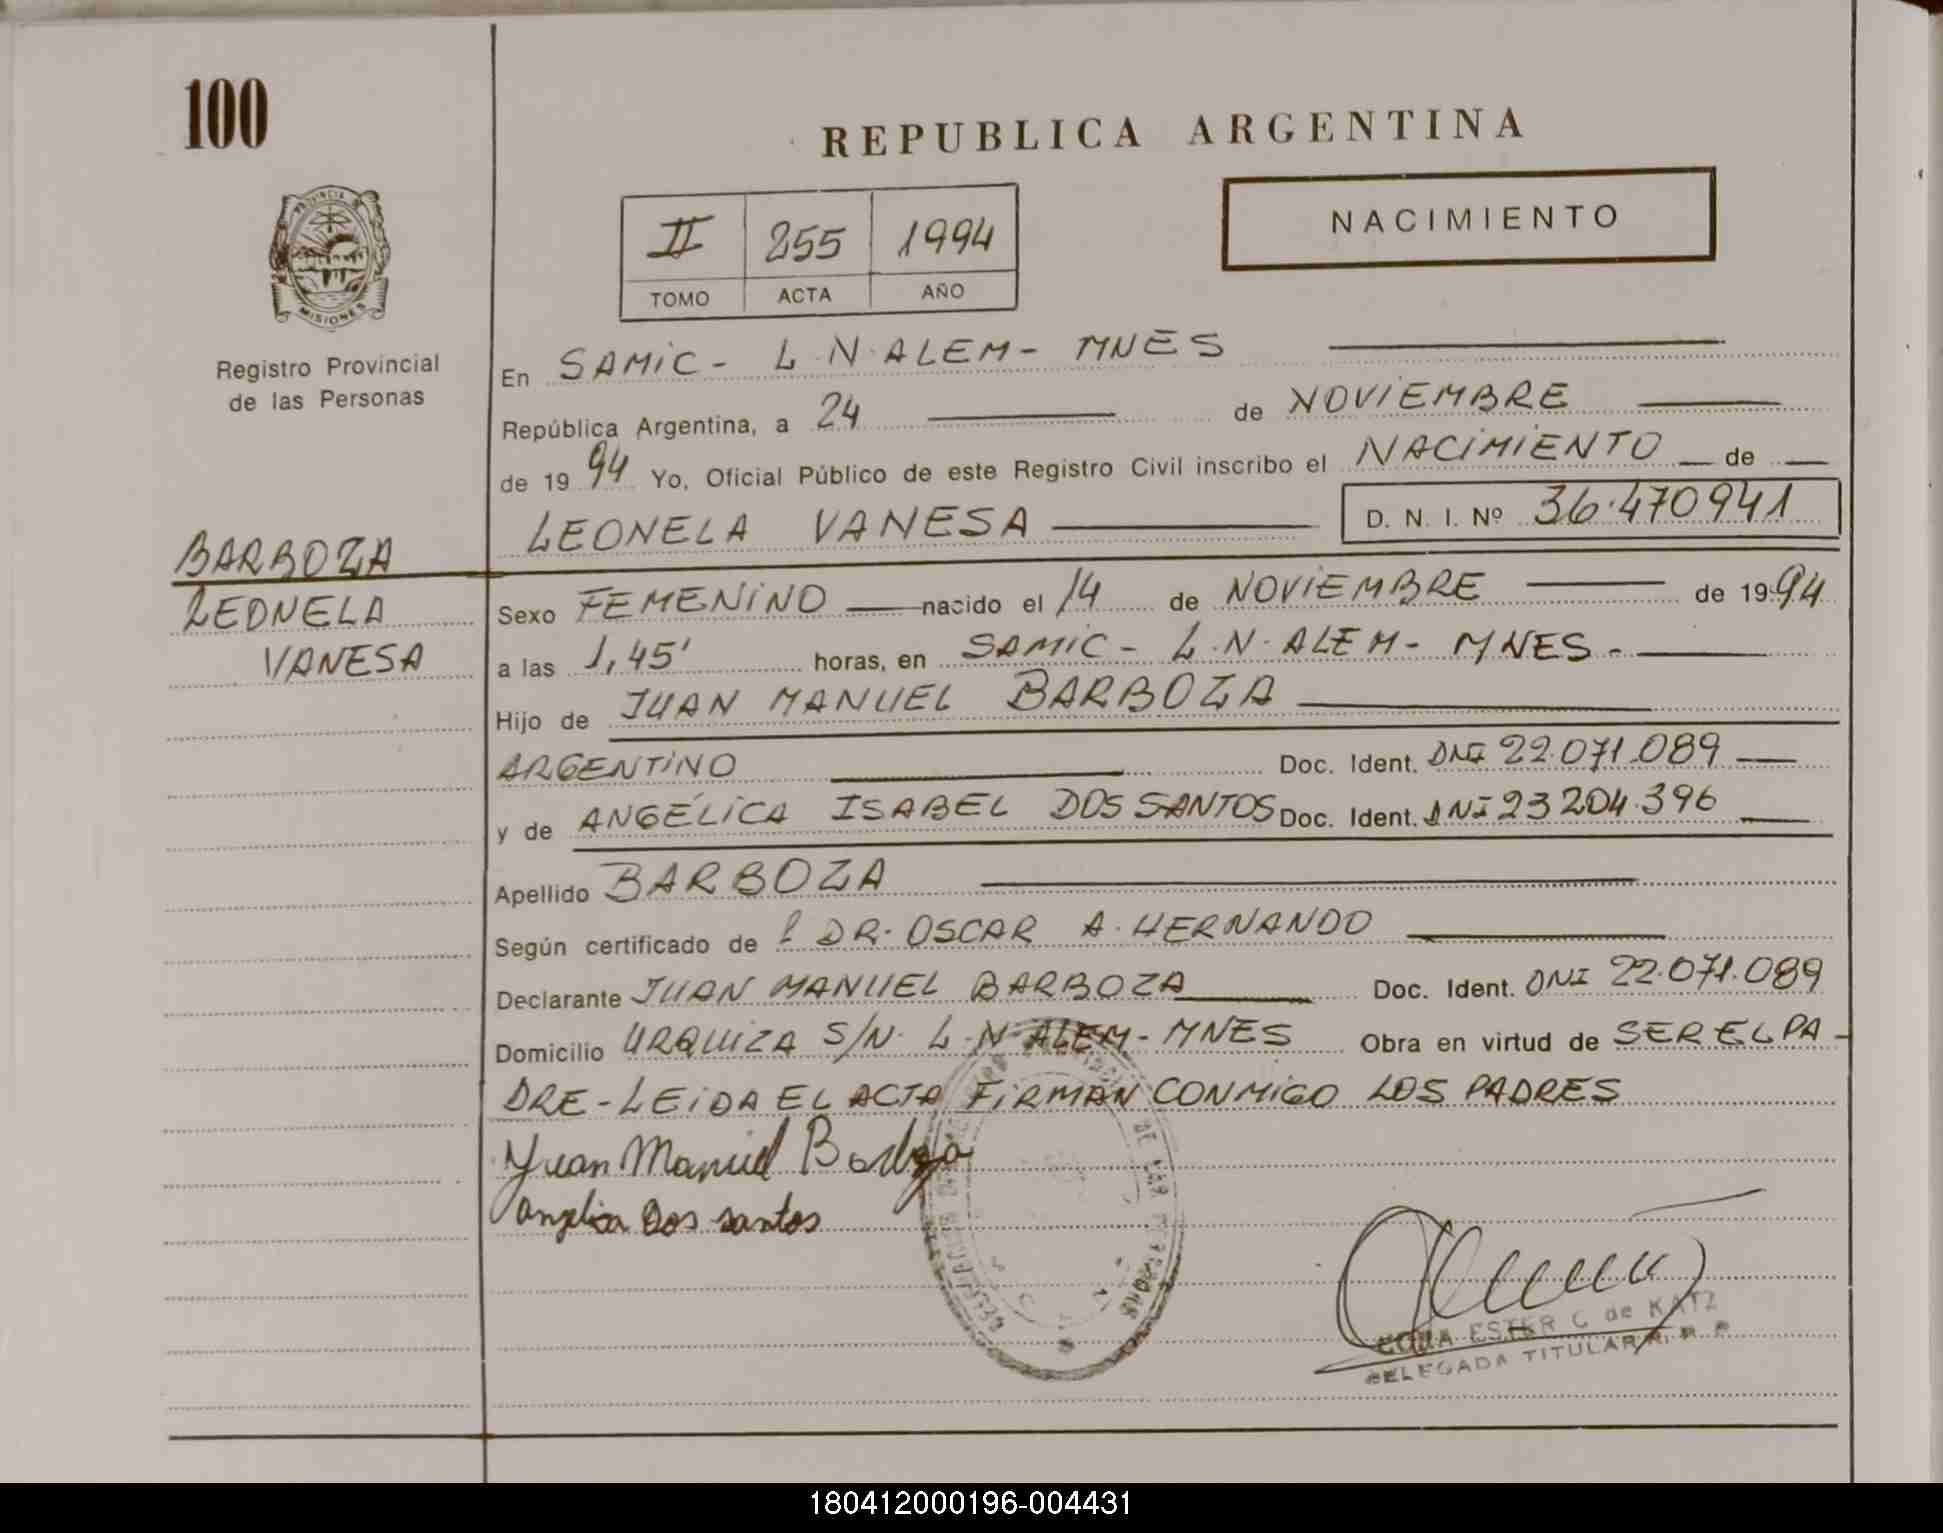 100
REPUBLICA ARGENTINA
II 255 1994
TOMO ACTA AÑO
NACIMIENTO
PROVINCIA DE
MISIONES
Registro Provincial
de las Personas
BARBOZA
LEONELA
VANESA
En SAMIC - L.N. ALEM - MNES
República Argentina, a 24 de NOVIEMBRE
de 1994 Yo, Oficial Público de este Registro Civil inscribo el NACIMIENTO de
LEONELA VANESA D. N. I. Nº 36.470941
Sexo FEMENINO nacido el 14 de NOVIEMBRE de 1994
a las 1,45' horas, en SAMIC - L.N. ALEM - MNES -
Hijo de JUAN MANUEL BARBOZA
ARGENTINO Doc. Ident. DNI 22.071.089
y de ANGÉLICA ISABEL DOS SANTOS Doc. Ident. DNI 23204.396
Apellido BARBOZA
Según certificado de DR. OSCAR A. HERNANDO
Declarante JUAN MANUEL BARBOZA Doc. Ident. DNI 22.071.089
Domicilio URQUIZA S/N. L.N. ALEM - MNES Obra en virtud de SER EL PA-
DRE - LEIDA EL ACTA FIRMAN CONMIGO LOS PADRES
Juan Manuel Barboza
Angelica Dos santos
ESTER C de KATZ
DELEGADA TITULAR
180412000196-004431